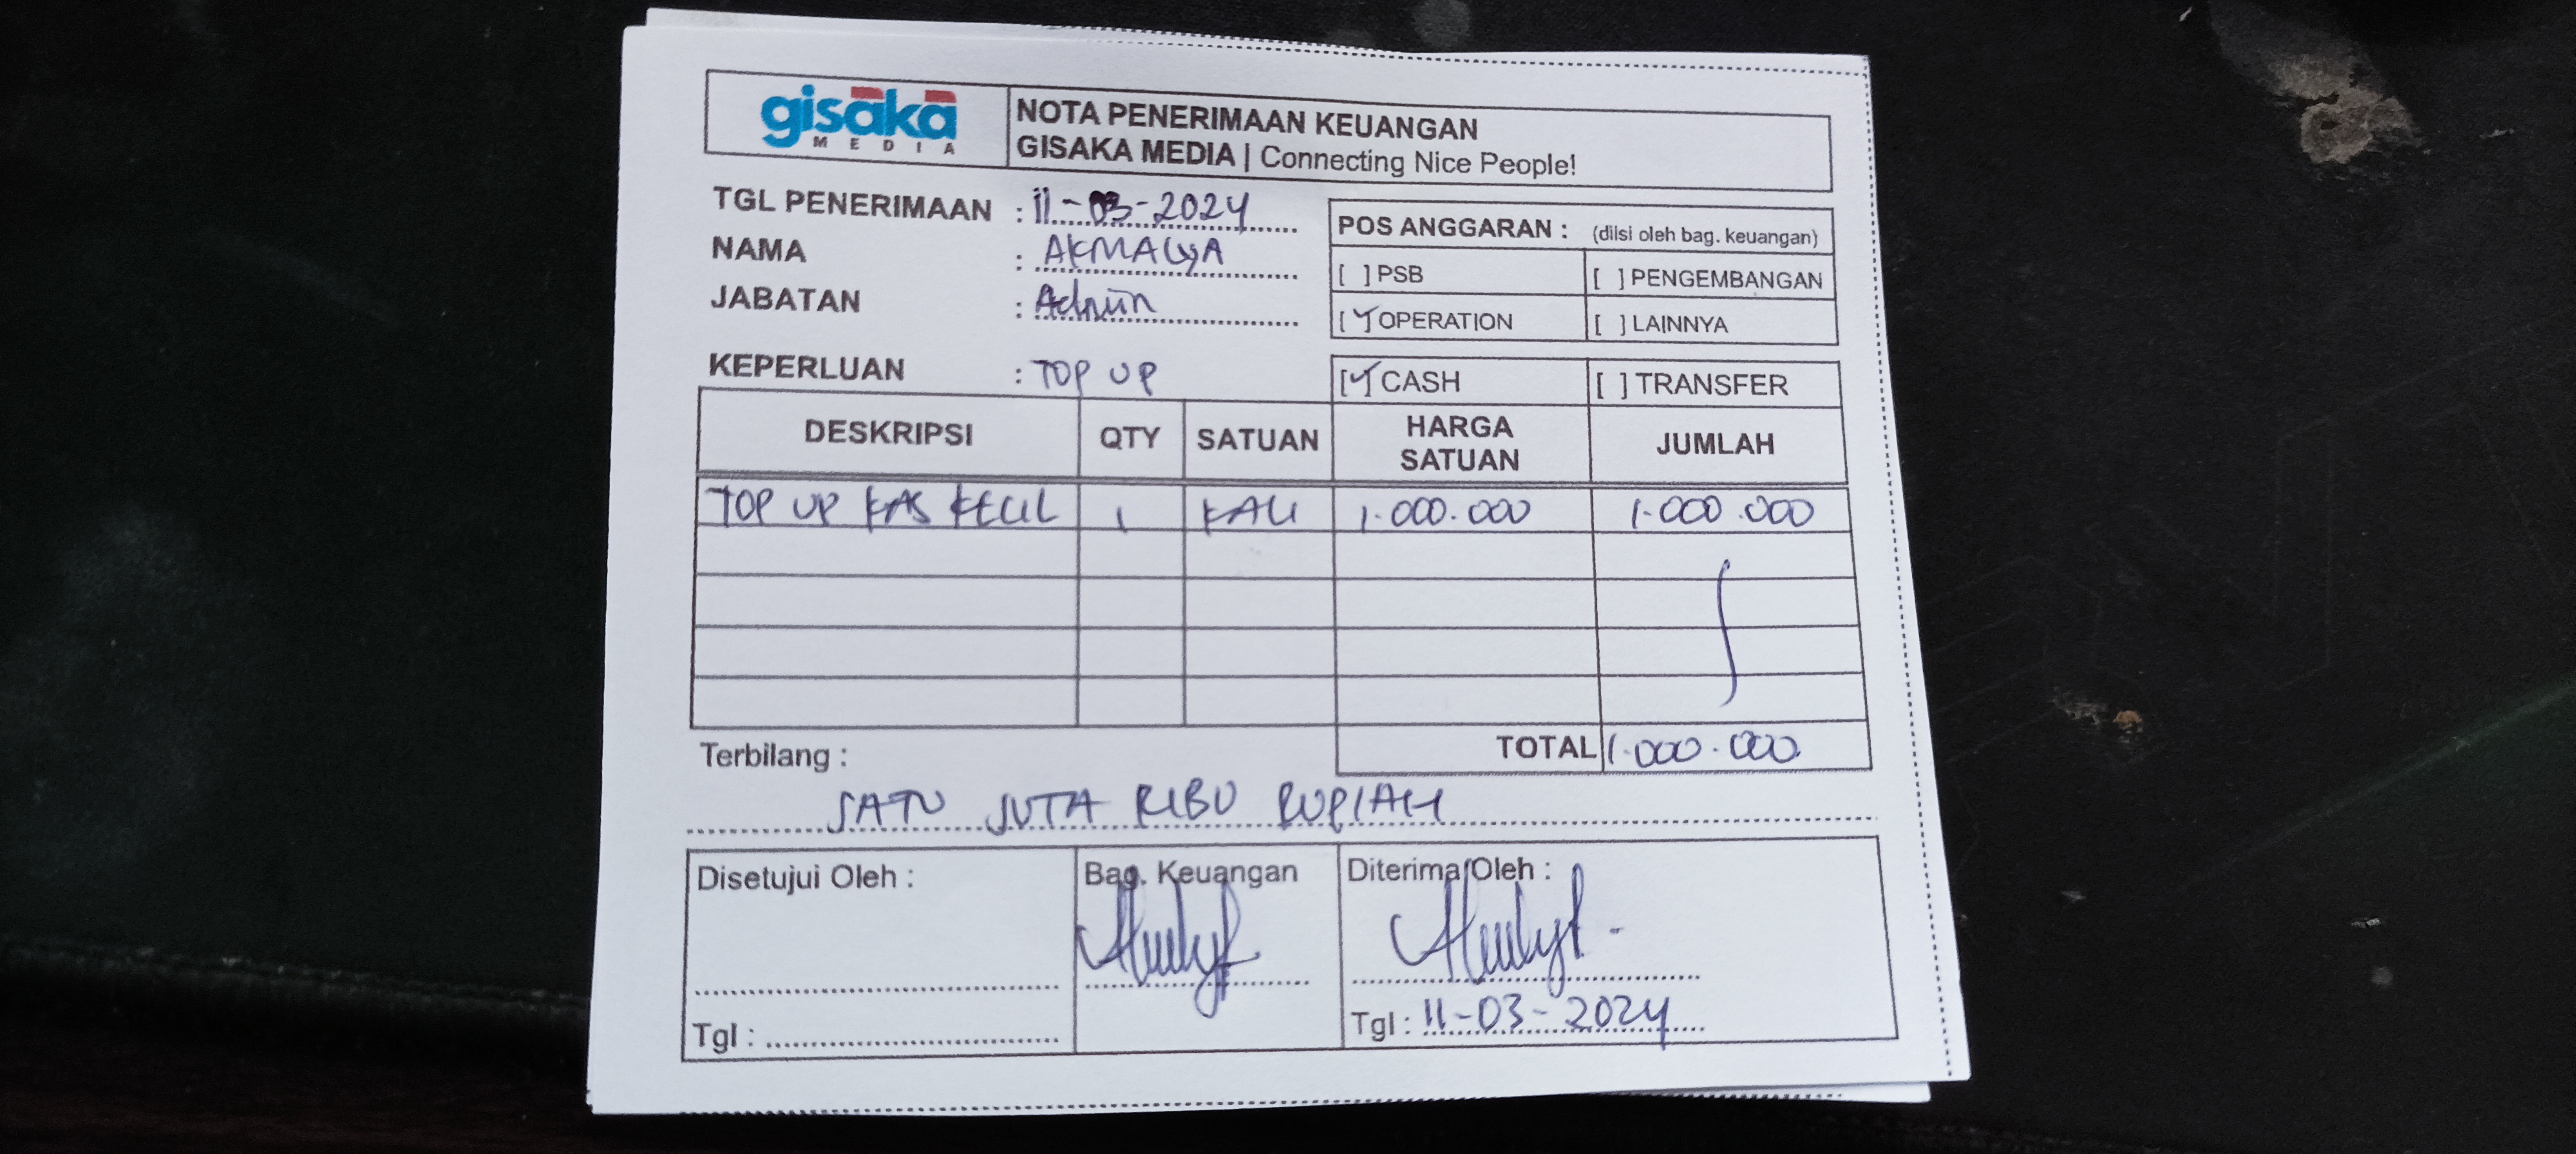 gisaka
MEDIA
NOTA PENERIMAAN KEUANGAN
GISAKA MEDIA | Connecting Nice People!
TGL PENERIMAAN : 11-03-2024
NAMA : AKMALYA
JABATAN : Admin
POS ANGGARAN : (diisi oleh bag. keuangan)
[ ] PSB [ ] PENGEMBANGAN
[✓] OPERATION [ ] LAINNYA
KEPERLUAN : TOP UP
[✓] CASH [ ] TRANSFER
DESKRIPSI QTY SATUAN HARGA SATUAN JUMLAH
TOP UP KAS KECIL 1 KALI 1.000.000 1.000.000
TOTAL 1.000.000
Terbilang :
SATU JUTA RIBU RUPIAH
Disetujui Oleh : Bag. Keuangan Diterima Oleh :
Tgl : Tgl : 11-03-2024